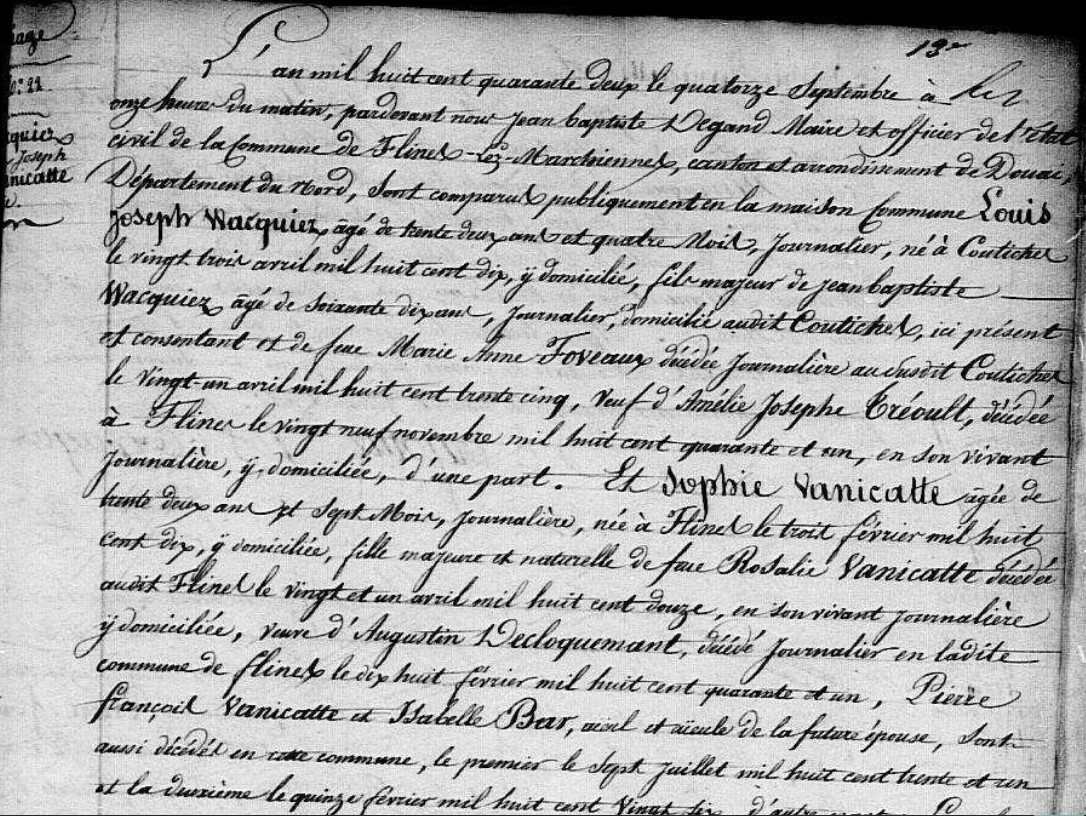 13e
L'an mil huit cent quarante deux le quatorze Septembre à les
onze heures du matin, pardevant nous Jean baptiste Degand Maire et officier de l'état
civil de la Commune de Flines-lez-Marchiennes, canton et arrondissement de Douai,
Département du Nord, sont comparus publiquement en la maison Commune Louis
Joseph Wacquiez, âgé de trente deux ans et quatre Mois, Journalier, né à Coutiches
le vingt trois avril mil huit cent dix, ÿ domicilié, fils majeur de jean baptiste
Wacquiez âgé de soixante dix ans, Journalier, domicilié audit Coutiches, ici présent
et consentant et de feue Marie Anne Foveaux décédée Journalière au susdit Coutiches
le vingt-un avril mil huit cent trente cinq, veuf d'Amélie Josephe Tréoult, décédée
à Flines le vingt neuf novembre mil huit cent quarante et un, en son vivant
Journalière, ÿ domiciliée, d'une part. Et Sophie Vanicatte âgée de
trente deux ans et sept Mois, Journalière, née à Flines le trois février mil huit
cent dix, ÿ domiciliée, fille majeure et naturelle de feue Rosalie Vanicatte décédée
audit Flines le vingt et un avril mil huit cent douze, en son vivant Journalière
ÿ domiciliée, veuve d'Augustin Decloquemant, décédé Journalier en ladite
commune de flines le dix huit février mil huit cent quarante et un, Pierre
françois Vanicatte et Isabelle Bar, aieul et aïeule de la future épouse, sont
aussi décédés en cette commune, le premier le sept Juillet mil huit cent trente et un
et la deuxième le quinze février mil huit cent vingt six, d'autre part